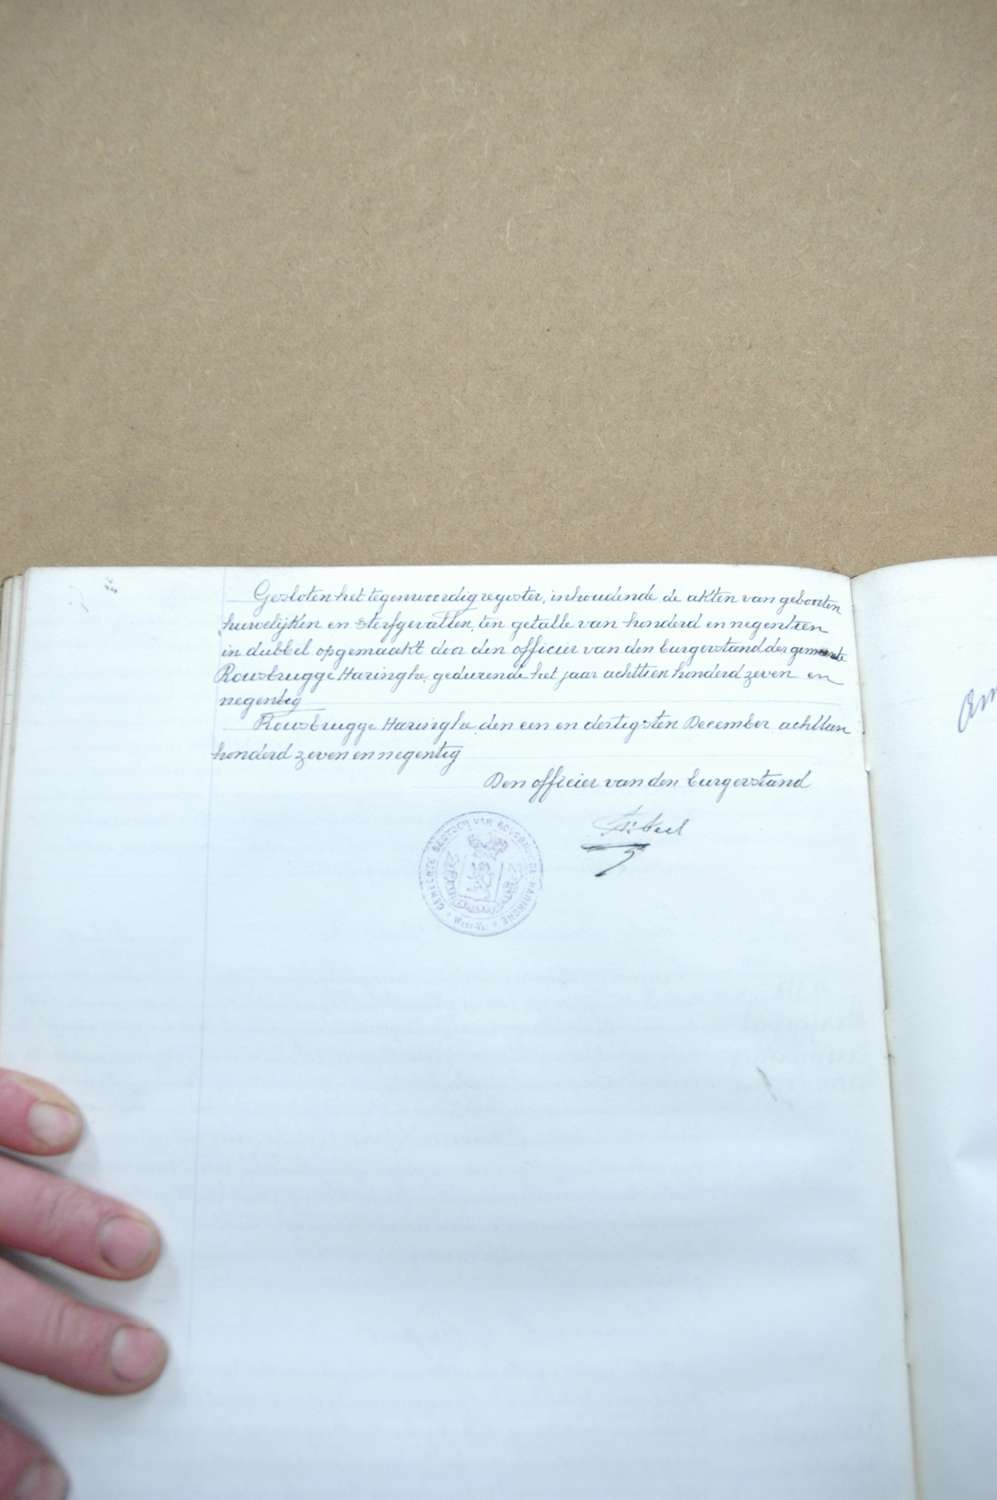 Gesloten het tegenwoordig register, inhoudende de akten van geboorten
huwelijken en sterfgevallen, ten getalle van honderd en negentien
in dubbel opgemaakt door den officier van den burgerstand der gemeente
Rousbrugge Haringhe, gedurende het jaar achttien honderd zeven en
negentig
Rousbrugge Haringhe, den een en dertigsten December achttien
honderd zeven en negentig
Den officier van den burgerstand
GEMEENTE BESTUUR VAN ROUSBRUGGE-HARINGHE